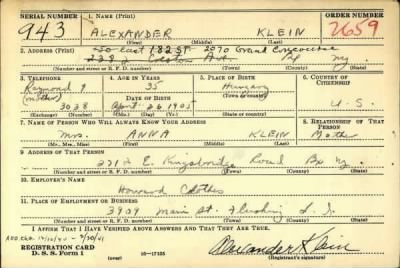 SERIAL NUMBER 1. NAME (Print) ORDER NUMBER
943 ALEXANDER KLEIN 2659
(First) (Middle) (Last)
2. ADDRESS (Print) 50 East 182 ST 2070 Grand Concourse
Ave. N.Y.
(Number and street or R. F. D. number) (Town) (County) (State)
3. TELEPHONE 4. AGE IN YEARS 5. PLACE OF BIRTH 6. COUNTRY OF CITIZENSHIP
Raymond 9 35 Hungary
(mother) DATE OF BIRTH (Town or county)
3028 April 26 1905 U. S.
(Exchange) (Number) (Mo.) (Day) (Yr.) (State or country)
7. NAME OF PERSON WHO WILL ALWAYS KNOW YOUR ADDRESS 8. RELATIONSHIP OF THAT PERSON
Mrs. ANNA KLEIN Mother
(Mr., Mrs., Miss) (First) (Middle) (Last)
9. ADDRESS OF THAT PERSON
E. Kingsbridge Road Bx N.Y.
(Number and street or R. F. D. number) (Town) (County) (State)
10. EMPLOYER'S NAME
Howard Clothes
11. PLACE OF EMPLOYMENT OR BUSINESS
3909 Main St. Flushing L. I.
(Number and street or R. F. D. number) (Town) (County) (State)
I AFFIRM THAT I HAVE VERIFIED ABOVE ANSWERS AND THAT THEY ARE TRUE.
REGISTRATION CARD
D. S. S. Form 1 (over) 16—17105 Alexander Klein
(Registrant's signature)